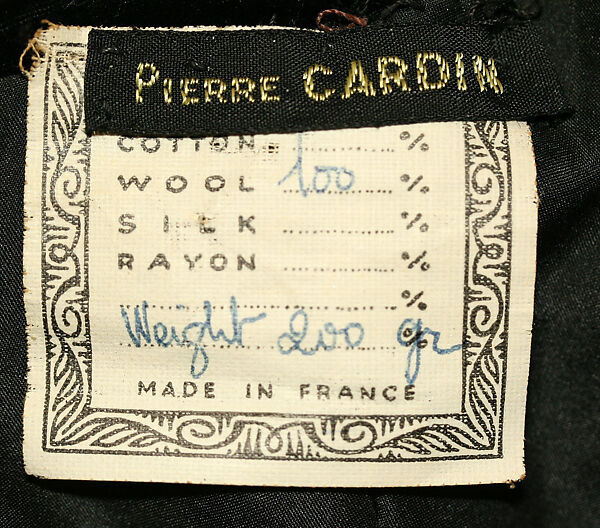 PIERRE CARDIN
COTTON %
WOOL 100 %
SILK %
RAYON %
%
Weight 200 gr %
MADE IN FRANCE